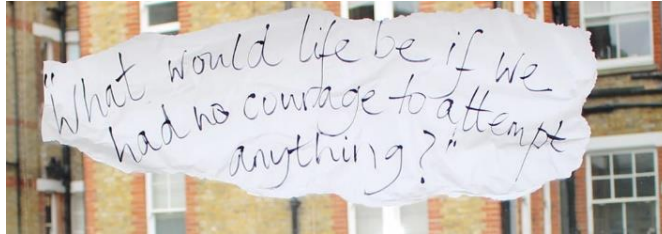 "What would life be if we
had no courage to attempt
anything?"